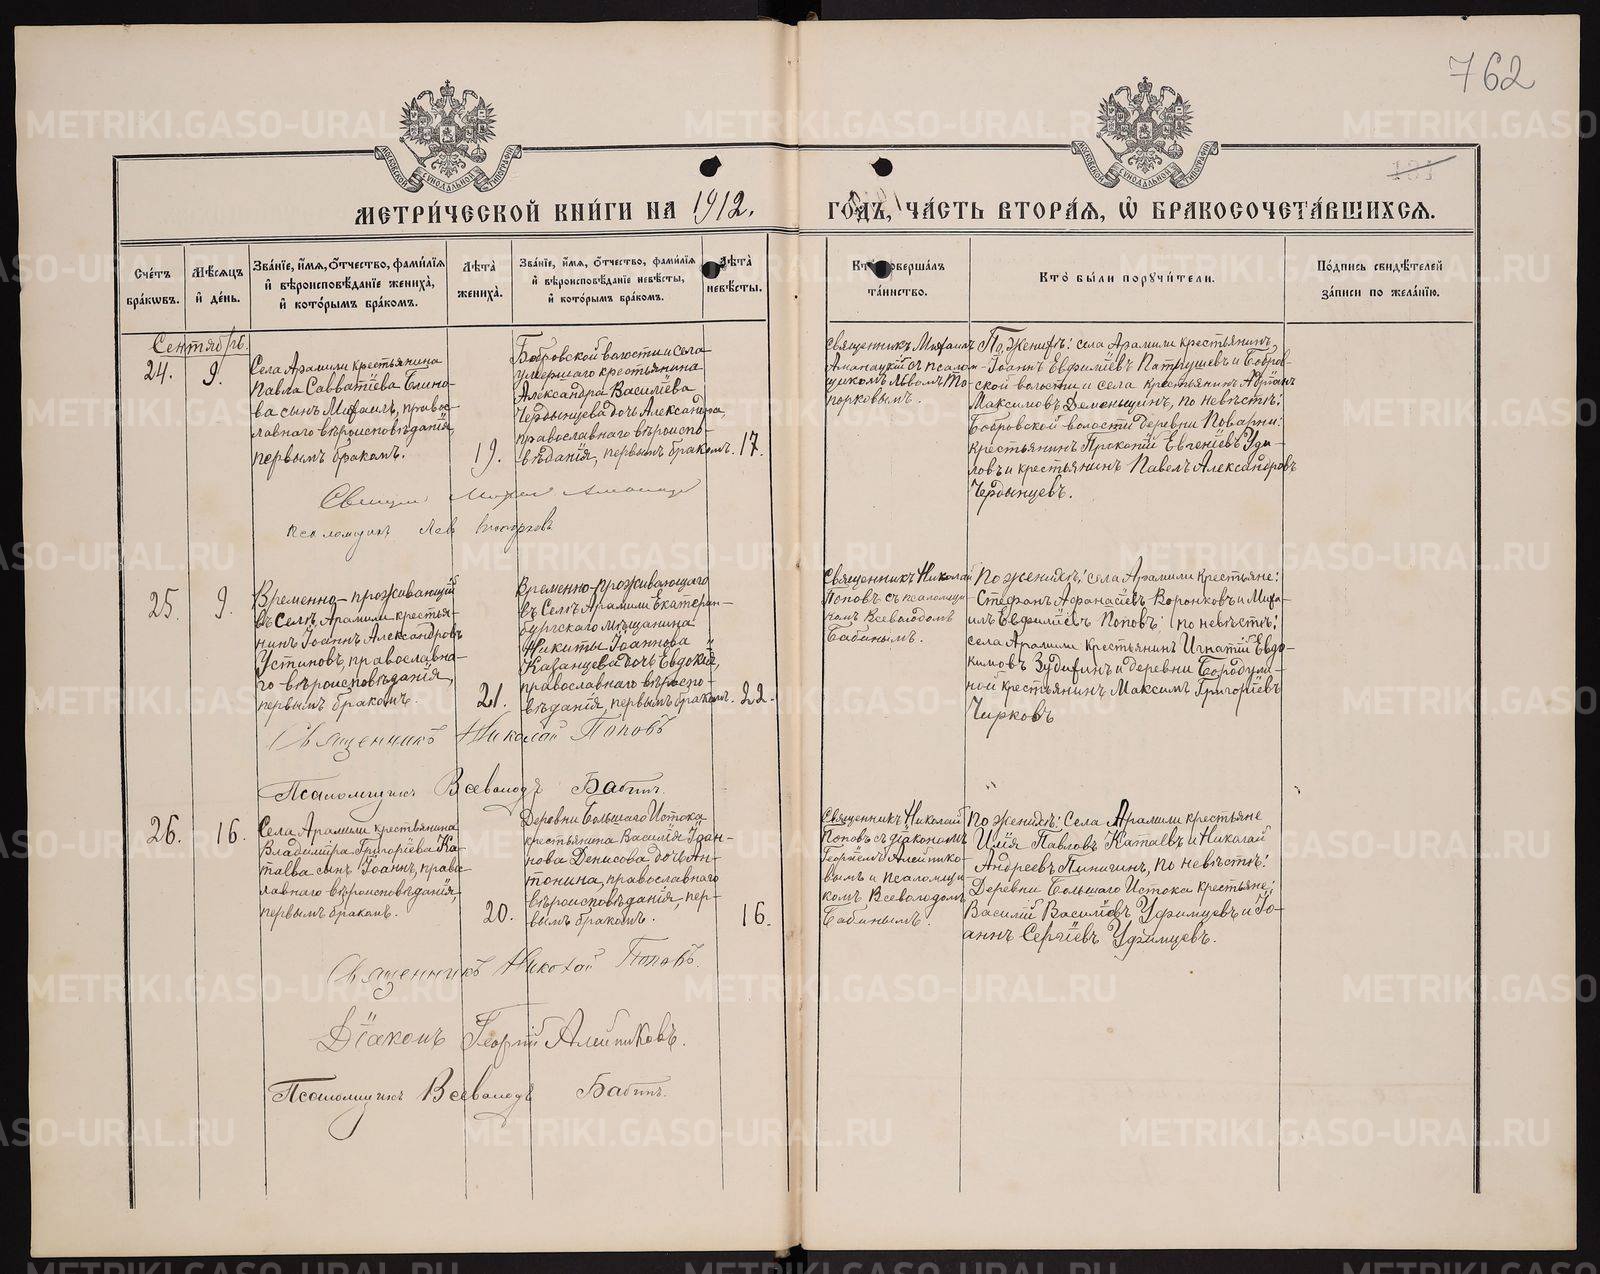 762
161
МОСКОВСКОЙ СѴНОДАЛЬНОЙ ТИПОГРАФІИ
МОСКОВСКОЙ СѴНОДАЛЬНОЙ ТИПОГРАФІИ
МЕТРИ́ЧЕСКОЙ КНИ́ГИ НА 1912. ГО́ДЪ, ЧА́СТЬ ВТОРА́Я, Ѡ БРАКОСОЧЕТА́ВШИХСЯ.
Сче́тъ бра́кωвъ.
Мѣ́сяцъ и҆ де́нь.
Зва́нїе, и҆́мя, ѻ҆́тчество, фами́лїя и҆ вѣроисповѣ́данїе жениха̀, и҆ кото́рымъ бра́комъ.
Лѣ́та жениха̀.
Зва́нїе, и҆́мя, ѻ҆́тчество, фами́лїя и҆ вѣроисповѣ́данїе невѣ́сты, и҆ кото́рымъ бра́комъ.
Лѣ́та невѣ́сты.
Кто̀ соверша́лъ та́инство.
Кто̀ бы́ли порꙋчи́тели.
По́дпись свидѣ́телей за́писи по жела́нїю.
Сентябрь.
24.
9.
Села Арамили крестьянина
Павла Савватіева Блино-
ва сынъ Михаилъ, правос-
лавнаго вѣроисповѣданія,
первымъ бракомъ.
19.
Бобровской волости и села
умершаго крестьянина
Александра Василіева
Чердынцева дочь Александра,
православнаго вѣроиспо-
вѣданія, первымъ бракомъ.
17.
Священникъ Михаилъ
Аманацкій съ псалом-
щикомъ Львомъ То-
порковымъ.
По женихѣ: села Арамили крестьянинъ
Іоаннъ Евфиміевъ Патрушевъ и Бобров-
ской волости и села крестьянинъ Адріанъ
Максимовъ Деменьшинъ, по невѣстѣ:
Бобровской волости деревни Поварни:
крестьянинъ Прокопій Евгеніевъ Уди-
ловъ и крестьянинъ Павелъ Александровъ
Чердынцевъ.
псаломщикъ Левъ Топорковъ
25.
9.
Временно-проживающій
въ Селѣ Арамили крестья-
нинъ Іоаннъ Александровъ
Устиновъ, православна-
го вѣроисповѣданія,
первымъ бракомъ.
21.
Временно-проживающаго
въ Селѣ Арамили Екатерин-
бургскаго мѣщанина
Никиты Іоаннова
Казанцева дочь Евдокія,
православнаго вѣроиспо-
вѣданія, первымъ бракомъ.
22.
Священникъ Николай
Поповъ съ псаломщи-
комъ Всеволодомъ
Бабинымъ.
По женихѣ: села Арамили крестьяне:
Стефанъ Афанасіевъ Воронковъ и Миха-
илъ Евфиміевъ Поповъ: по невѣстѣ:
села Арамили крестьянинъ Игнатій Евдо-
кимовъ Зудихинъ и деревни Бородули-
ной крестьянинъ Максимъ Григоріевъ
Чирковъ
Священникъ Николай Поповъ
Псаломщикъ Всеволодъ Бабинъ.
26.
16.
Села Арамили крестьянина
Владиміра Григоріева Ка-
таева сынъ Іоаннъ, право-
славнаго вѣроисповѣданія,
первымъ бракомъ.
20.
Деревни Большаго Истока
крестьянина Василія Іоан-
нова Денисова дочь Ан-
тонина, православнаго
вѣроисповѣданія, пер-
вымъ бракомъ.
16.
Священникъ Николай
Поповъ съ діакономъ
Георгіемъ Алейнико-
вымъ и псаломщи-
комъ Всеволодомъ
Бабинымъ.
По женихѣ: Села Арамили крестьяне
Илія Павловъ Катаевъ и Николай
Андреевъ Пиничинъ, по невѣстѣ:
Деревни Большаго Истока крестьяне:
Василій Василіевъ Уфимцевъ и Іо-
аннъ Сергіевъ Уфимцевъ.
Священникъ Николай Поповъ.
Діаконъ Георгій Алейниковъ.
Псаломщикъ Всеволодъ Бабинъ.
METRIKI.GASO-URAL.RU